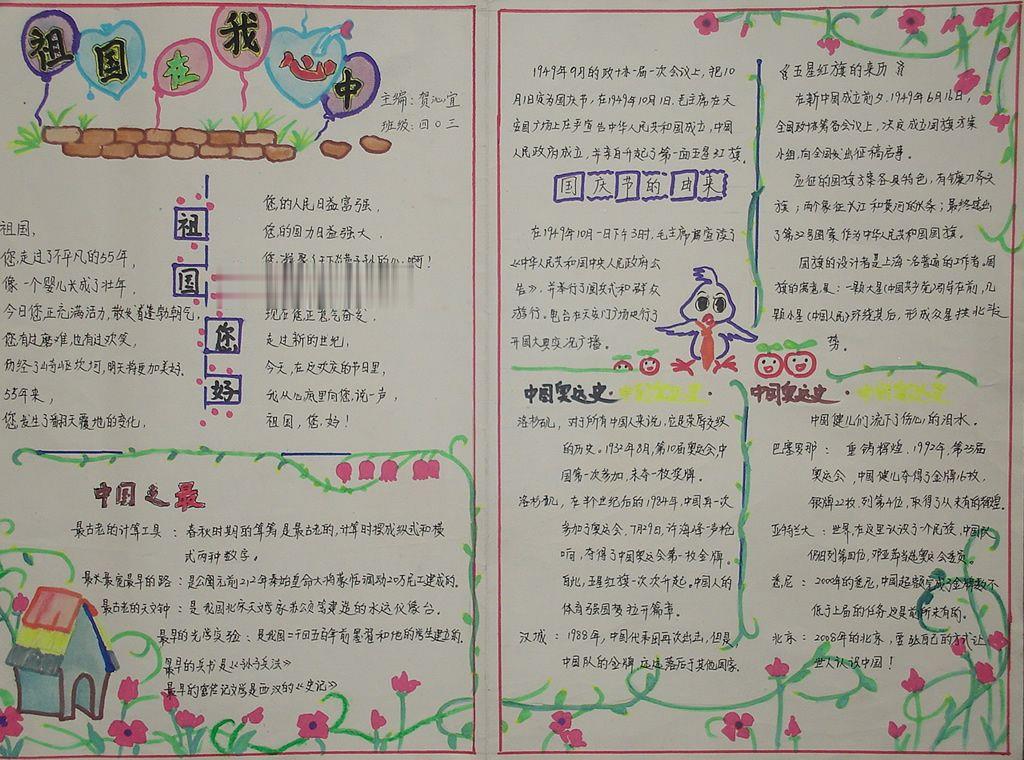 祖国在我心中
主编：贺沁宜
班级：四〇三
祖国您好
祖国，
您走过了不平凡的55年，
像一个婴儿长成了壮年，
今日您正充满活力，散发着蓬勃朝气，
您有过磨难，也有过欢笑，
历经了崎岖坎坷，明天将更加美好。
55年来，
您发生了翻天覆地的变化，
您的人民日益富强，
您的国力日益强大，
啊！
现在您正意气奋发，
走过新的世纪，
今天，在庆欢庆的节日里，
我从心底里向您，说一声，
祖国，您，好！
中国之最
最古老的计算工具：春秋时期的算筹是最古老的，计算时摆成纵式和横
式两种数字。
最古老的天文钟：是我国北宋天文
建造的水运仪象台。
最早的光学实验：是我国二千四五百年前墨翟和他的学生建立的。
最早的兵书是《孙子兵法》
西汉的《史记》
1949年9月的政协一届一次会议上，把10
月1日定为国庆节，在1949年10月1日，毛主席在天
安门广场上庄严宣告中华人民共和国成立，中国
人民政府成立，并亲自升起了第一面五星红旗。
国庆节的由来
在1949年10月一日下午3时，毛主席宣读了
《中华人民共和国中央人民政府公
告》，并举行了阅兵式和群众
游行，电台在天安门广场进行了
开国大典实况广播。
《五星红旗的来历》
在新中国成立前夕，1949年6月16日，
全国政协筹备会议上，决定成立国旗方案
小组，向全国发出征稿启事。
应征的国旗方案各具特色，有镰刀斧头
旗；两个象征长江和黄河的
条；最终选出
了第32号图案作为中华人民共和国国旗。
国旗的设计者是上海一名普通的工作者。国
旗的寓意是：一颗大星（中国共产党）引导在前，几
颗小星（中国人民）环绕其后，形成众星拱北斗之
势。
中国奥运史·中国奥运史·
洛杉矶，对于所有中国人来说，它是荣辱交织
的历史。1932年8月，第10届奥运会，中
国第一次参加，未夺一枚奖牌。
洛杉矶，在半个世纪后的1984年，中国再一次
参加了奥运会，7月29日，许海峰一步枪
响，夺得了中国奥运会第一枚金牌。
自此，五星红旗一次次升起。中国人的
体育强国梦拉开篇章。
汉城：1988年，中国代表团再次出征，但是，
中国队的金牌
落后于其他国家，
中国奥运史·中国奥运史·
中国健儿们流下伤心的泪水。
巴塞罗那：重铸辉煌，1992年，第25届
奥运会，中国健儿夺得了金牌16枚，
银牌22枚，列第4位，取得了从未有的辉煌。
亚特兰大：世界在这里认识了个民族，中国队
仍旧列第四位，邓亚萍当选奥运会委员。
悉尼：2000年的悉尼，中国超额完成了金牌数不
低于上届的任务这是前所未有的。
北京：2008年的北京，要
自己的方式让
世人认识中国！